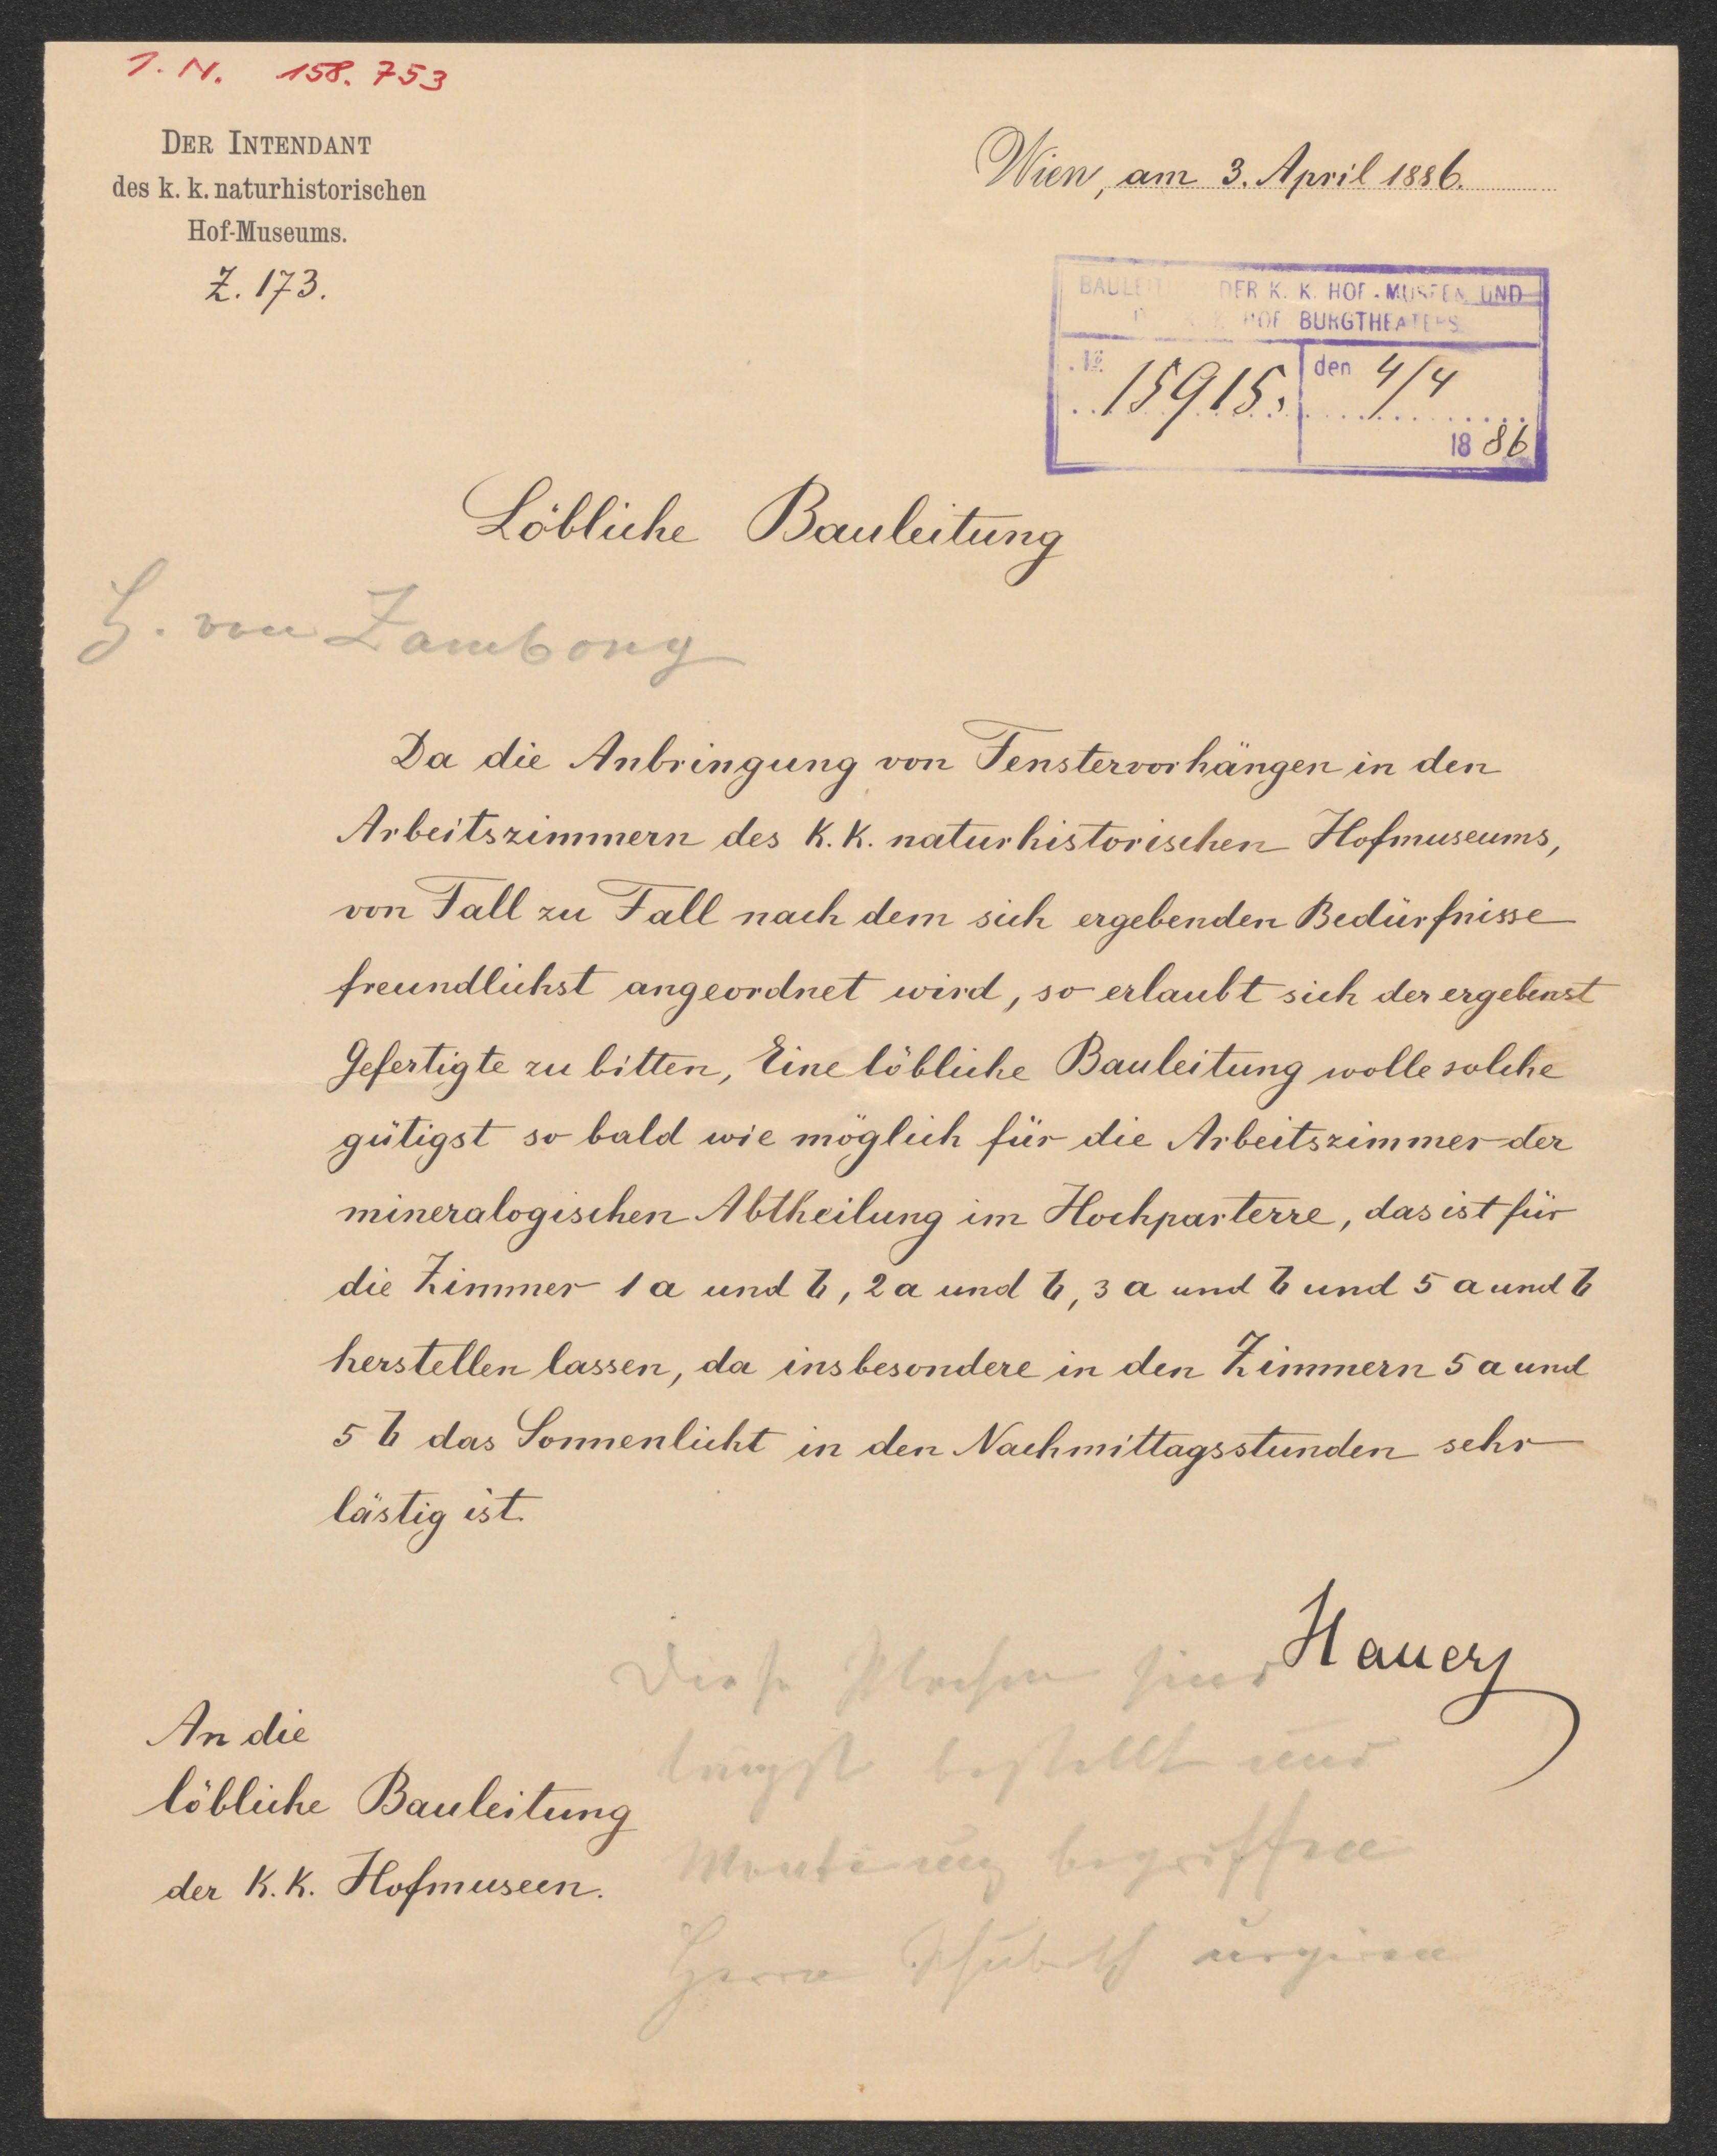 I. N. 158.753
DER INTENDANT
des k. k. naturhistorischen
Hof-Museums.
Z. 173.
Wien, am 3. April 1886.
BAULEIT DER K. K. HOF-MUSEEN UND
HOF BURGTHEATERS
No 15915. den 4/4
1886
Löbliche Bauleitung
H. von Zambony
Da die Anbringung von Fenstervorhängen in den
Arbeitszimmern des k. k. naturhistorischen Hofmuseums,
von Fall zu Fall nach dem sich ergebenden Bedürfnisse
freundlichst angeordnet wird, so erlaubt sich der ergebenst
Gefertigte zu bitten, Eine löbliche Bauleitung wolle solche
gütigst so bald wie möglich für die Arbeitszimmer der
mineralogischen Abtheilung im Hochparterre, das ist für
die Zimmer 1 a und b, 2 a und b, 3 a und b und 5 a und b
herstellen lassen, da insbesondere in den Zimmern 5 a und
5 b das Sonnenlicht in den Nachmittagsstunden sehr
lästig ist.
Hauer
Diese sind
längst bestellt und
begriffen
Herrn urgiren
An die
löbliche Bauleitung
der k. k. Hofmuseen.